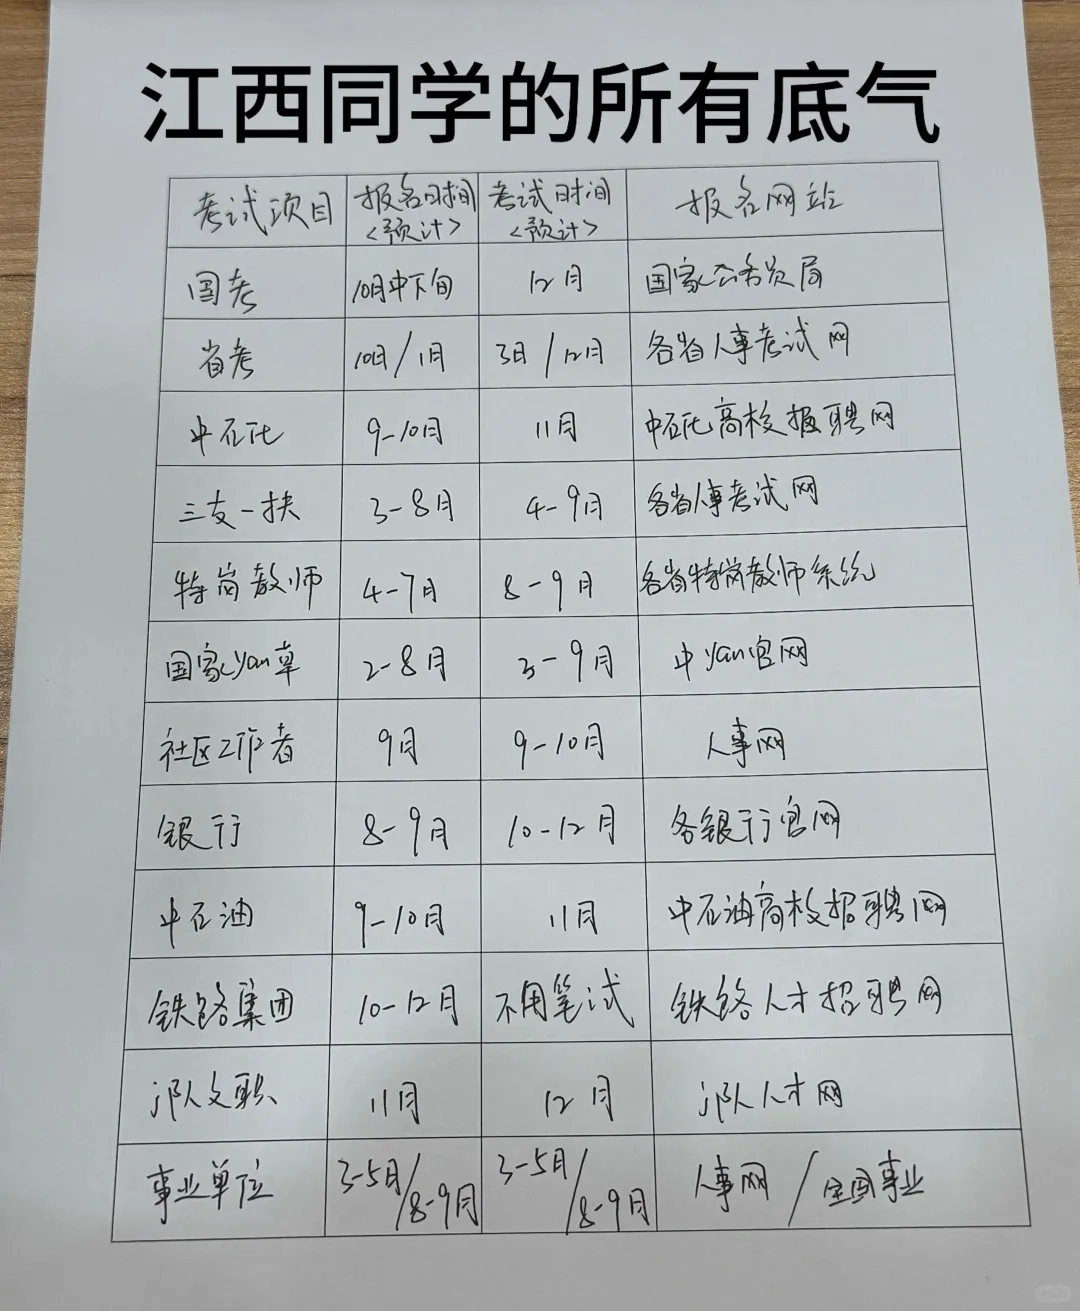 江西同学的所有底气
考试项目 报名时间 考试时间 报名网站
<预计> <预计>
国考 10月中下旬 12月 国家公务员局
省考 10月/1月 3月/12月 各省人事考试网
中石化 9-10月 11月 中石化高校招聘网
三支一扶 3-8月 4-9月 各省人事考试网
特岗教师 4-7月 8-9月 各省特岗教师系统
国家yan草 2-8月 3-9月 中yan官网
社区工作者 9月 9-10月 人事网
银行 8-9月 10-12月 各银行官网
中石油 9-10月 11月 中石油高校招聘网
铁路集团 10-12月 不用笔试 铁路人才招聘网
j队文职 11月 12月 j队人才网
事业单位 3-5月/8-9月 3-5月/8-9月 人事网/全国事业